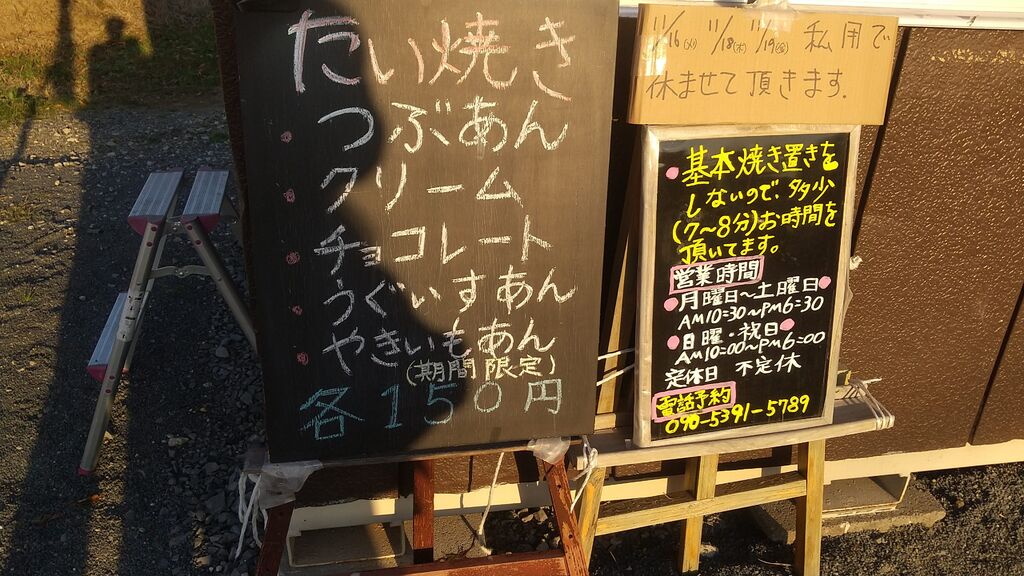 たい焼き
つぶあん
クリーム
チョコレート
うぐいすあん
やきいもあん
(期間限定)
各150円
11/16(火) 11/18(木) 11/19(金) 私用で
休ませて頂きます.
基本焼き置きを
しないので、多少
(7～8分)お時間を
頂いてます。
営業時間
月曜日～土曜日
AM10:30～PM6:30
日曜・祝日
AM10:00～PM6:00
定休日 不定休
電話予約
090-5391-5789